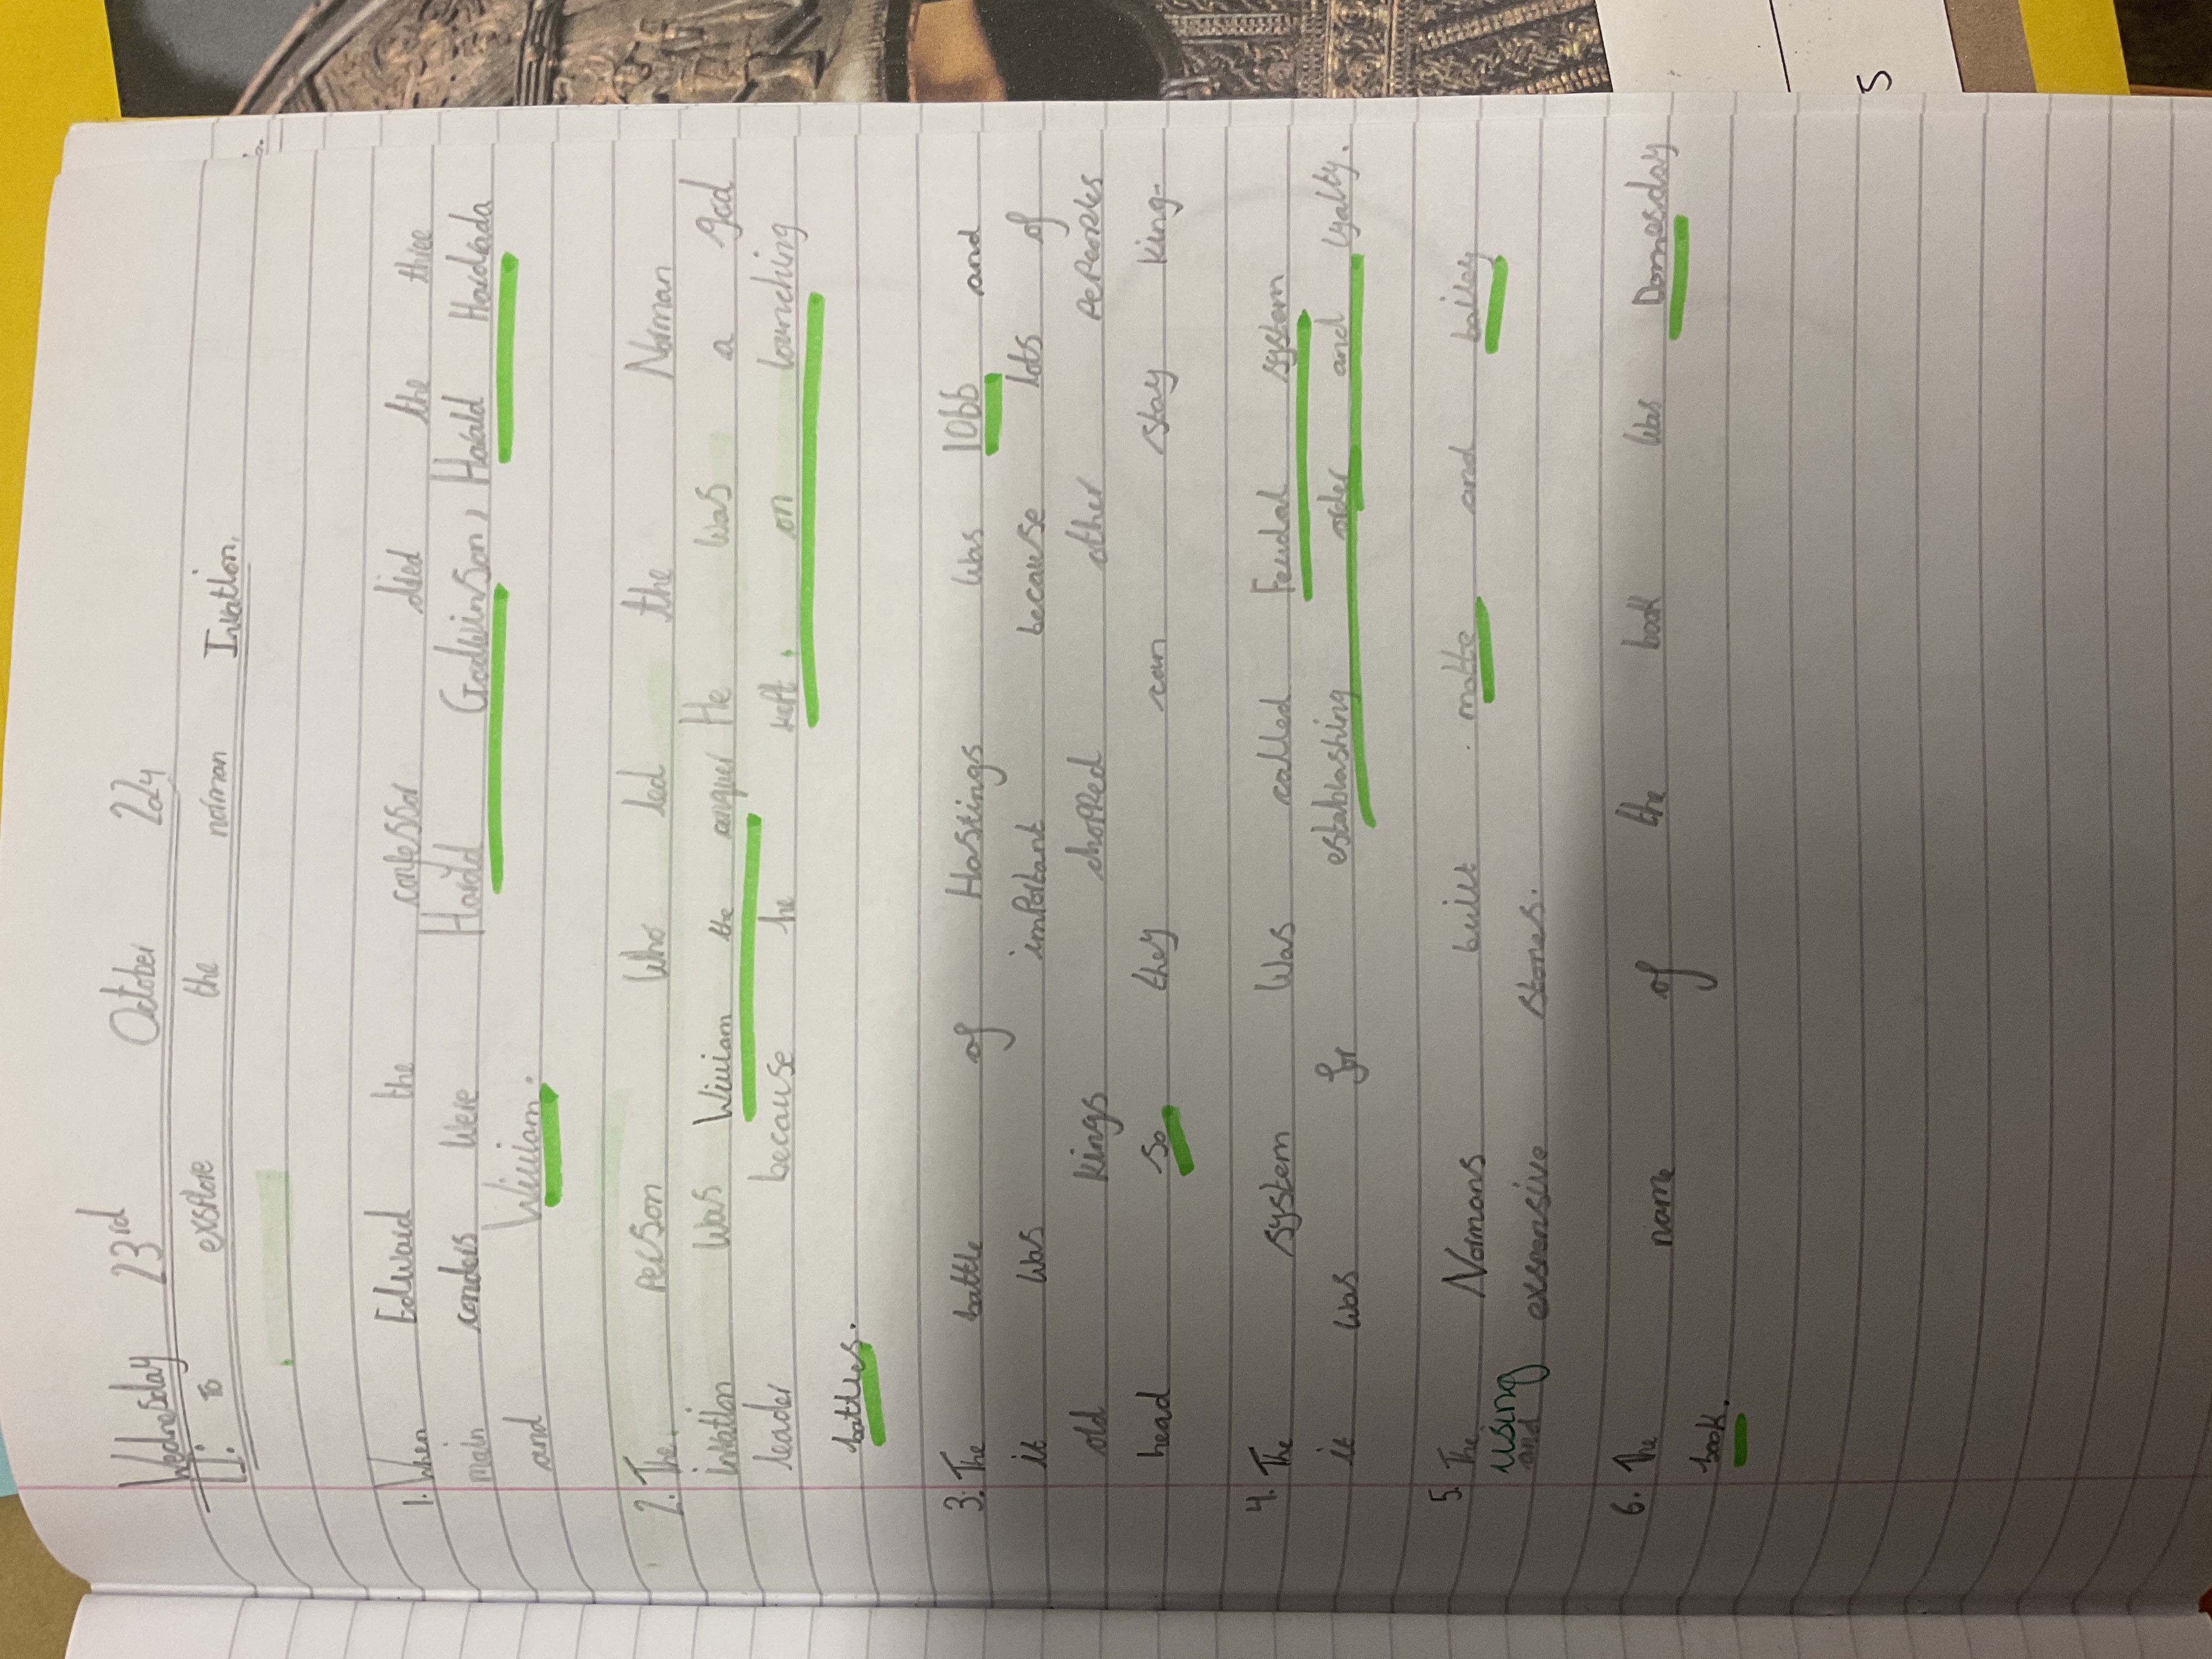 Wednesday 23rd October 2024
LI: To exsplore the norman Invation.
1. When Edward the confessor died the three
main conders were Harold Godwinson, Harald Hadada
and William.
2. The person who led the Norman
invation was William the conquer He was a god
leader because he keft on launching
battles.
3. The battle of Hastings was 1066 and
it was important because lots of
old kings chopped other pepoles
head so they can stay king.
4. The system was called Feudal system
it was for establashing order and lyalty.
5. The Normans built motte and bailey
using
and exspensive stones.
6. The name of the book was Domesday
book.
S